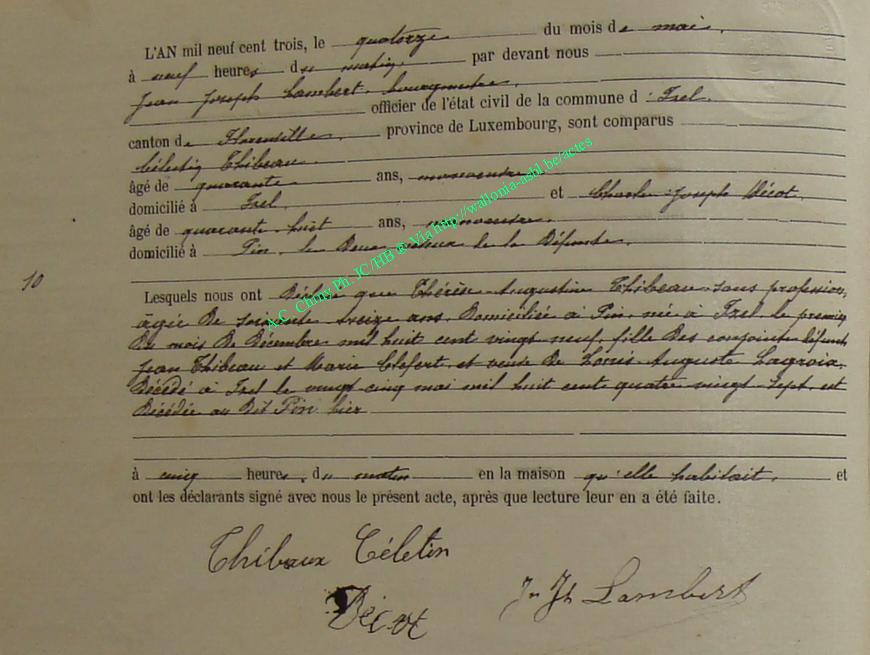 L'AN mil neuf cent trois, le quatorze du mois de mai,
à neuf heures du matin, par devant nous
Jean Joseph Lambert, bourgmestre,
officier de l'état civil de la commune d'Izel,
canton de Florenville, province de Luxembourg, sont comparus
Célestin Thibeau
âgé de quarante ans, manoeuvre
domicilié à Izel, et Charles Joseph Décot,
âgé de quarante huit ans, manoeuvre,
domicilié à Pin, le Deux de la Défunte,
10
Lesquels nous ont Déclaré que Thérèse Augustine Thibeau sans profession,
âgée De soixante treize ans, Domiciliée à Pin, née à Izel le premier
Du mois De Décembre mil huit cent vingt neuf, fille Des conjoints défunts
Jean Thibeau et Marie Clefert, et veuve De Louis Auguste Lacroix,
Décédé à Izel le vingt cinq mai mil huit cent quatre vingt sept, est
Décédée au Dit Pin hier
à cinq heures du matin en la maison qu'elle habitait, et
ont les déclarants signé avec nous le présent acte, après que lecture leur en a été faite.
Thibaux Céletin
Décot
Jn Jh Lambert
A.C. Chiny, Ph. JC/HB © Via http://wallonia-asbl.be/actes